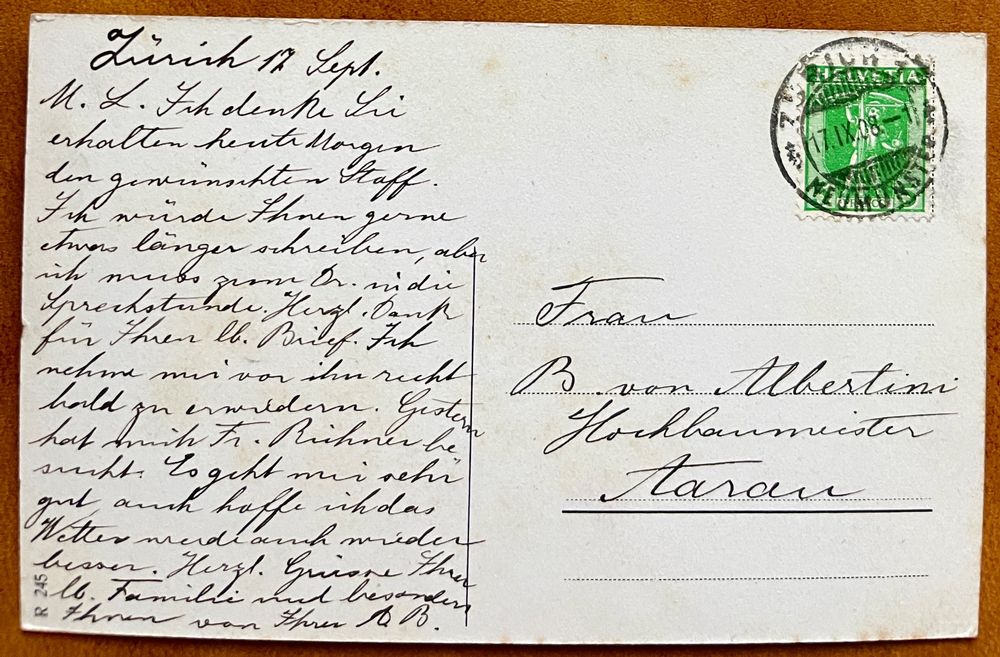 Zürich 17 Sept.
M. L. Ich denke Sie
erhalten heute Morgen
den gewünschten Stoff.
Ich würde Ihnen gerne
etwas länger schreiben, aber
ich muss zum Dr. in die
Sprechstunde. Herzl. Dank
für Ihren lb. Brief. Ich
nehme mir vor ihn recht
bald zu erwiedern. Gestern
hat mich Fr. Bühner be
sucht. Es geht mir sehr
gut, auch hoffe ich das
Wetter werde auch wieder
besser. Herzl. Grüsse Ihrer
lb. Familie und besonders
Ihnen von Ihrer A. B.
R 245
HELVETIA
ZÜRICH
17.IX.08
NEUMÜNSTER
Frau
B. von Albertini
Hochbaumeister
Aarau